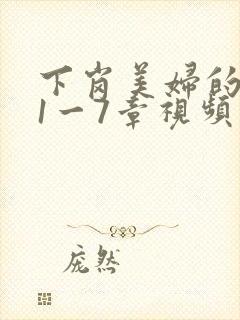 下岗美婦的
1一7章視頻
庞然